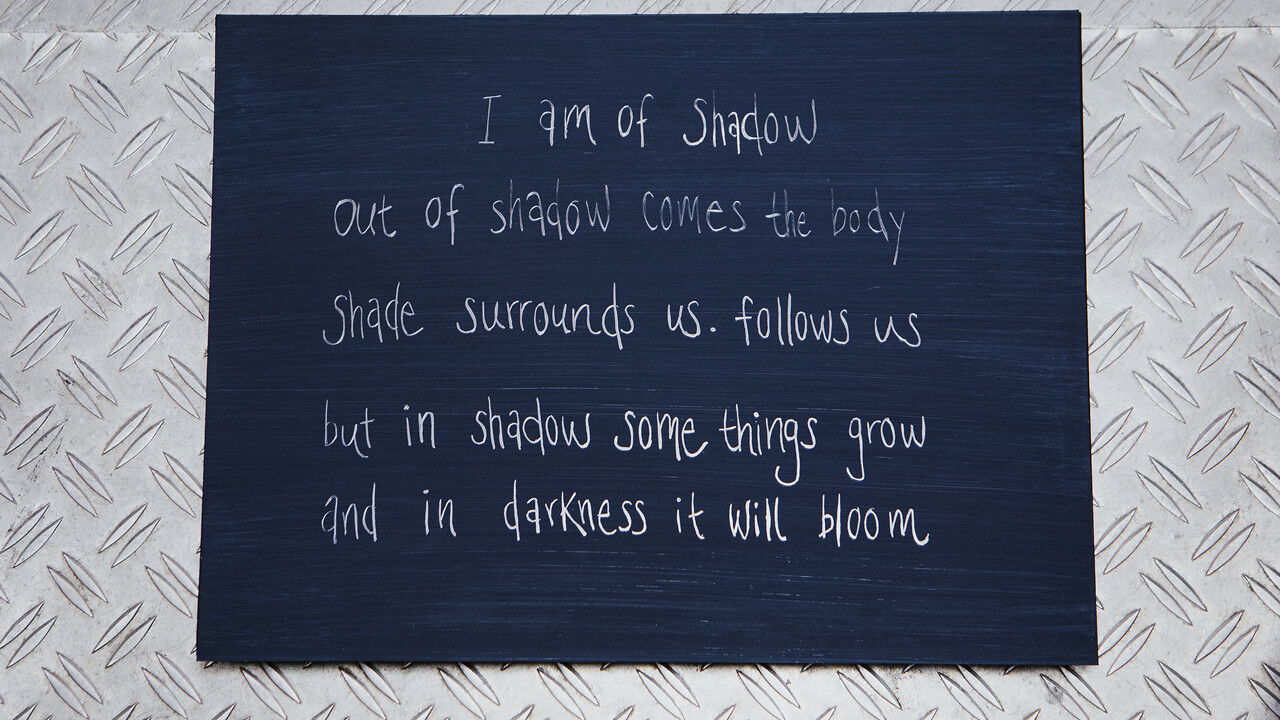 I am of Shadow
out of shadow comes the body
shade surrounds us. follows us
but in shadow some things grow
and in darkness it will bloom